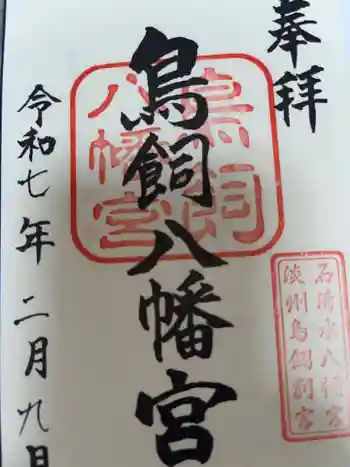 奉拝
鳥飼八幡宮
鳥飼
八幡宮
石清水八幡宮
淡州鳥飼別宮
令和七年二月九日